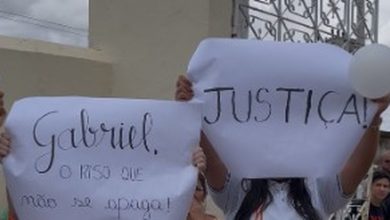 Gabriel.
O RISO QUE
não se apaga!
JUSTIÇA!